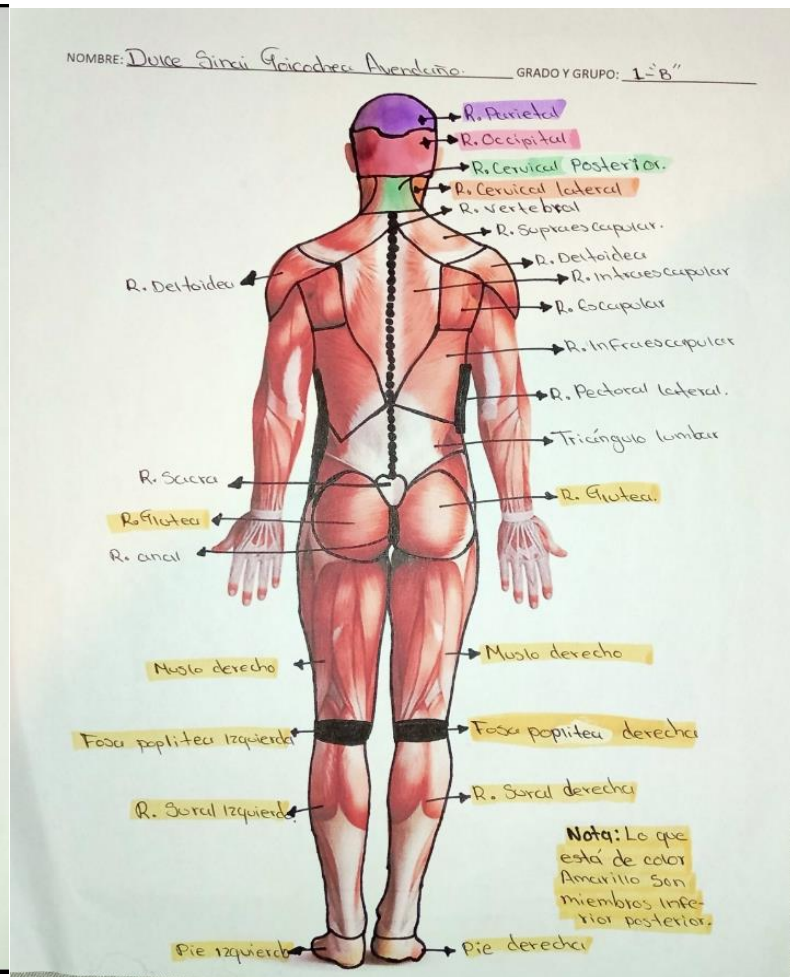 NOMBRE: Dulce Sinai Goicochea Avendaño. GRADO Y GRUPO: 1-"B"
R. Parietal
R. Occipital
R. Cervical Posterior.
R. Cervical lateral
R. Vertebral
R. Supraescapular.
R. Deltoidea
R. Deltoidea
R. Intraescapular
R. Escapular
R. Infraescapular
R. Pectoral lateral.
Triángulo lumbar
R. Sacra
R. Glutea.
R. Glutea
R. anal
Muslo derecho
Muslo derecho
Fosa poplitea Izquierda
Fosa poplitea derecha
R. Sural Izquierd.
R. Sural derecha
Nota: Lo que
está de color
Amarillo Son
miembros Infe-
rior posterior.
Pie izquierdo
Pie derecha